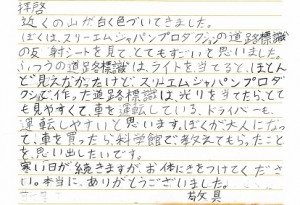 拝啓
近くの山が白く色づいてきました。
ぼくは、スリーエムジャパンプロダクションの道路標識
の反射シートを見て、とてもすごいと思いました。
ふつうの道路標識は、ライトを当てると、ほとん
ど見えなかったけど、スリーエムジャパンプロダ
クションで作った道路標識は光りを当てたら、とて
も見やすくて、車を運転している、ドライバーも、
運転しやすいと思います。ぼくが大人になっ
て、車を買ったら、科学館で教えてもらったこと
を思い出したいです。
寒い日が続きますが、お体にきをつけてくださ
い。本当に、ありがとうございました。
敬具